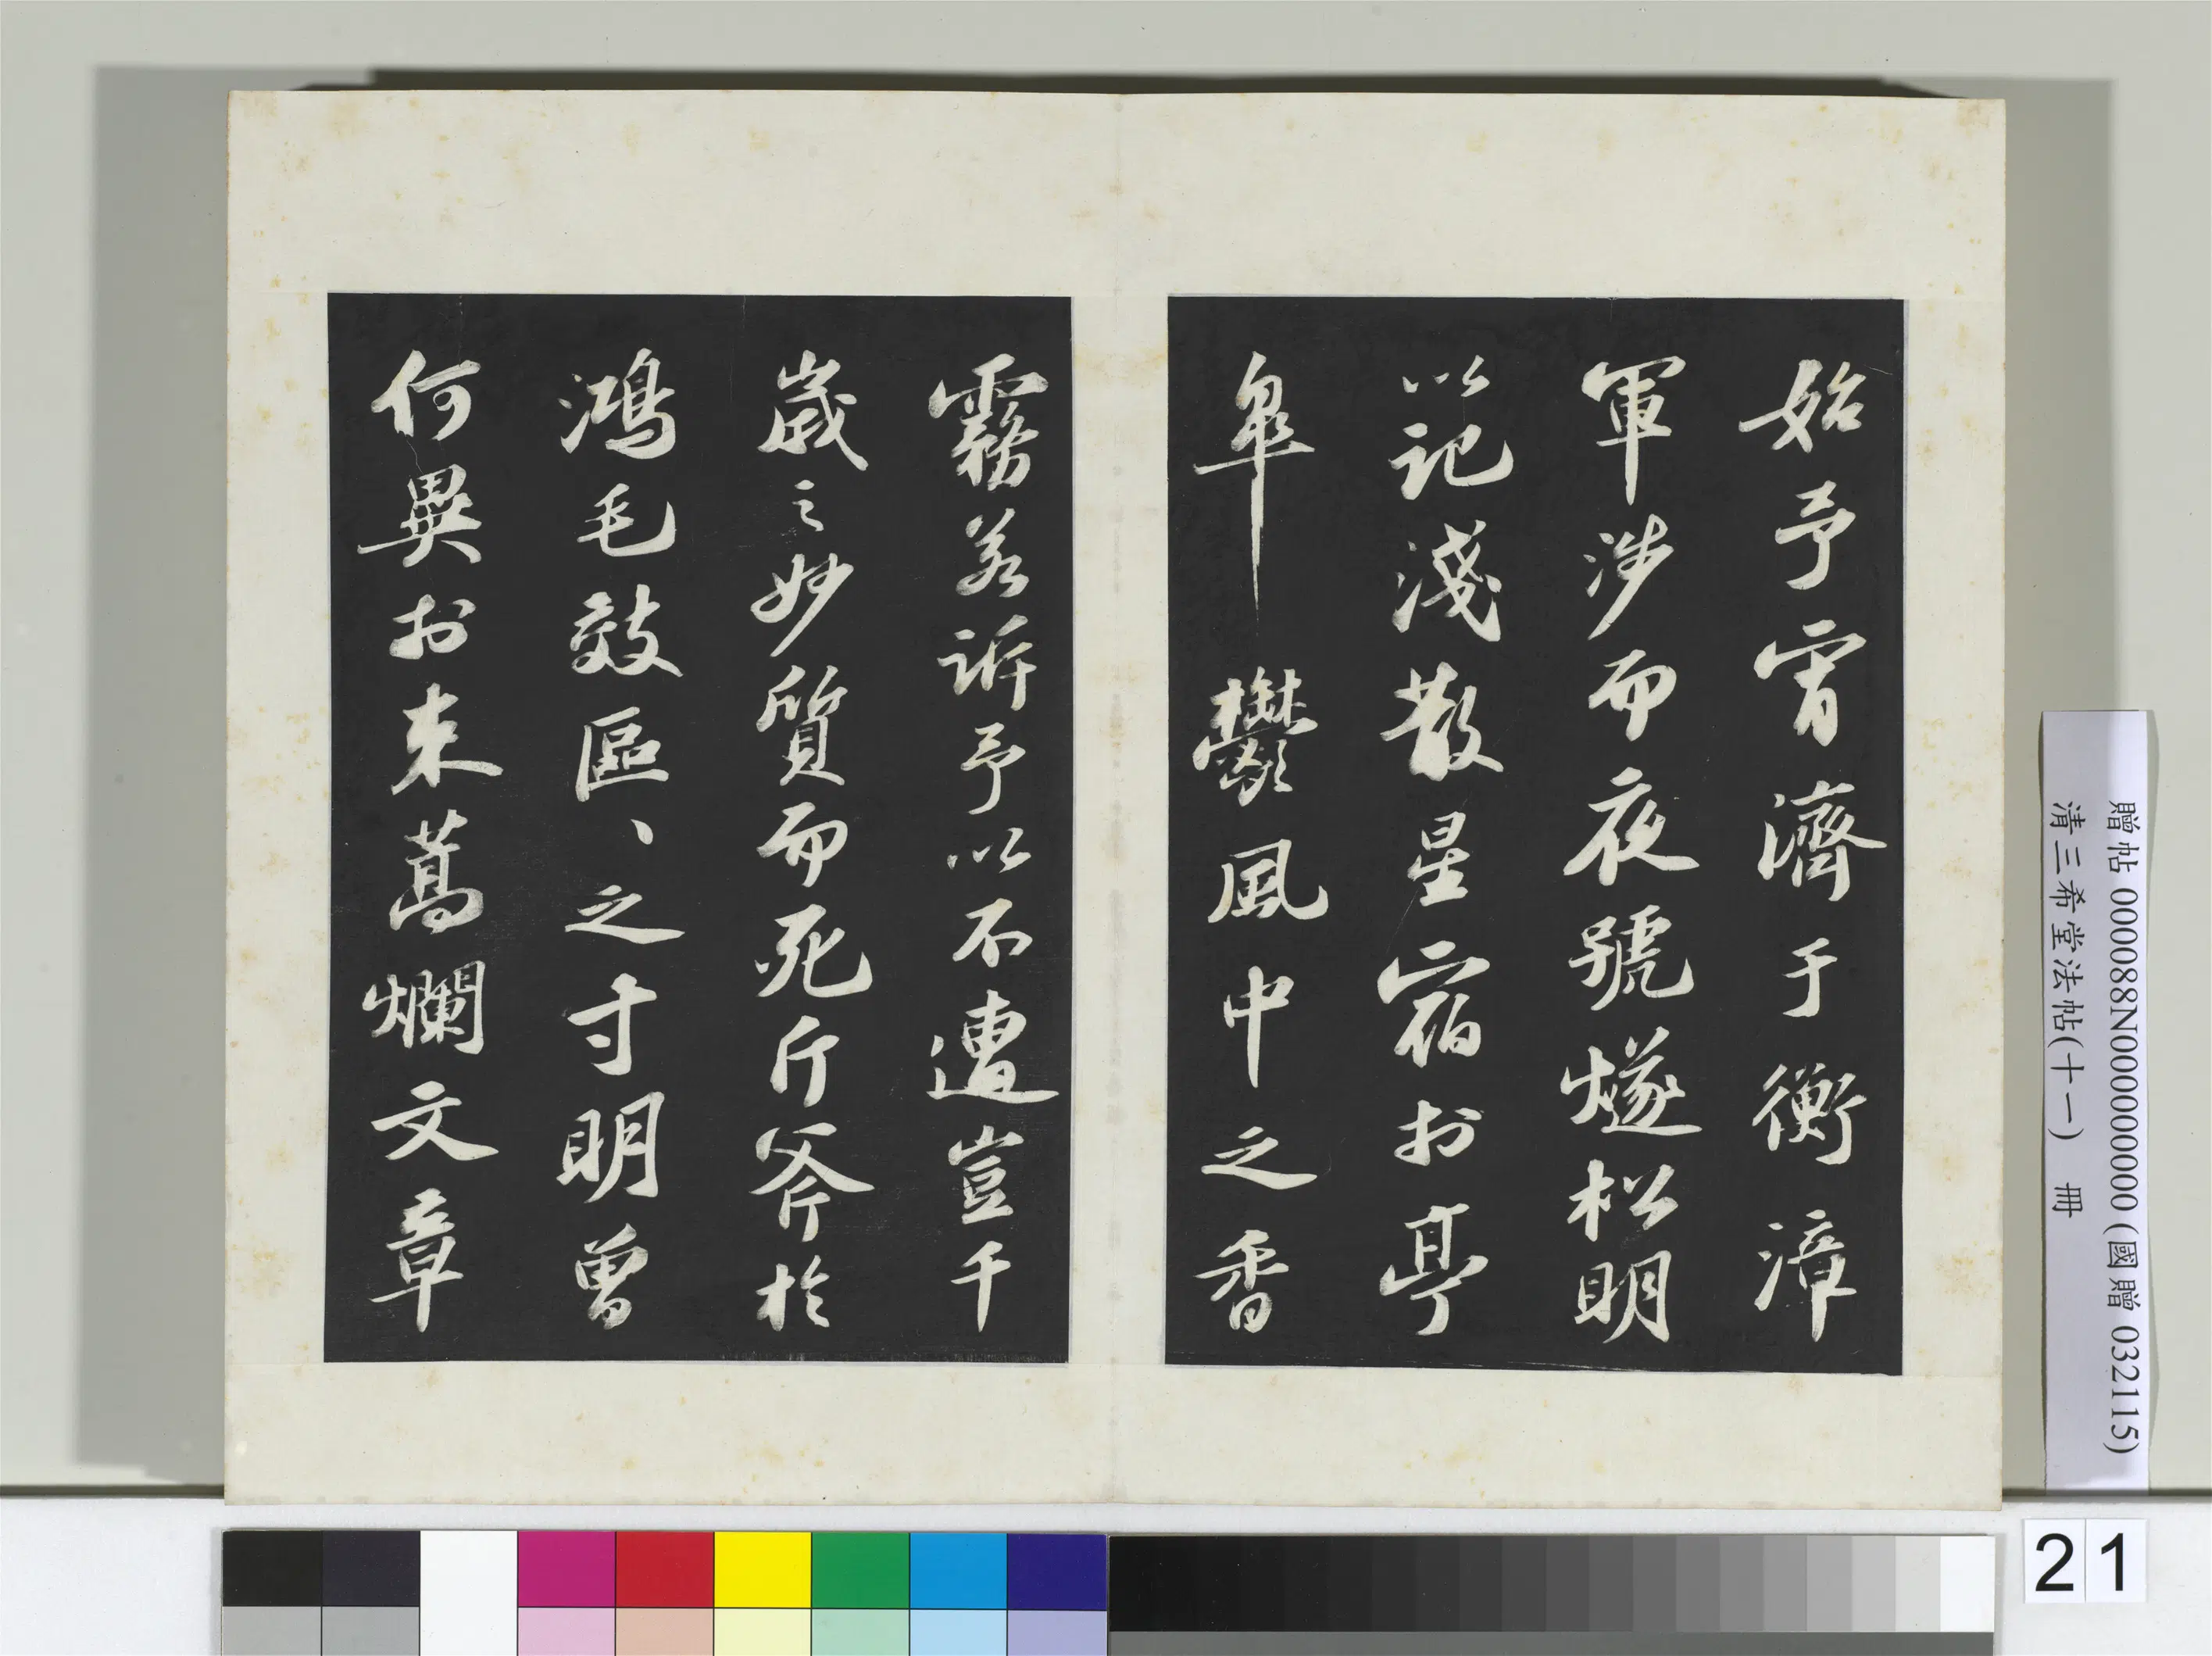 始予宵濟于衡漳
軍涉而夜號燧松明
以記淺散星宿於亭
皋鬱風中之香
霧若訴予以不遭豈千
歲之妙質而死斤斧於
鴻毛效區、之寸明曽
何異於束蒿爛文章
贈帖 000088N000000000 (國贈 032115)
清三希堂法帖(十一) 冊
21